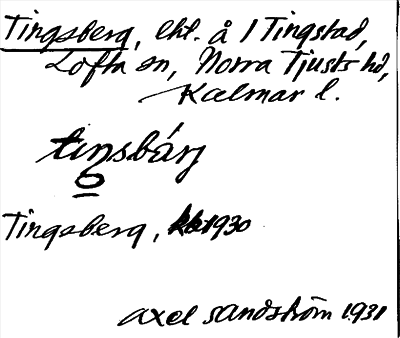 Tingsberg, lht. å 1 Tingstad,
Lofta sn, Norra Tjusts hd,
Kalmar l.
tiŋsbárj
Tingsberg, kb 1930
Axel Sandström 1931